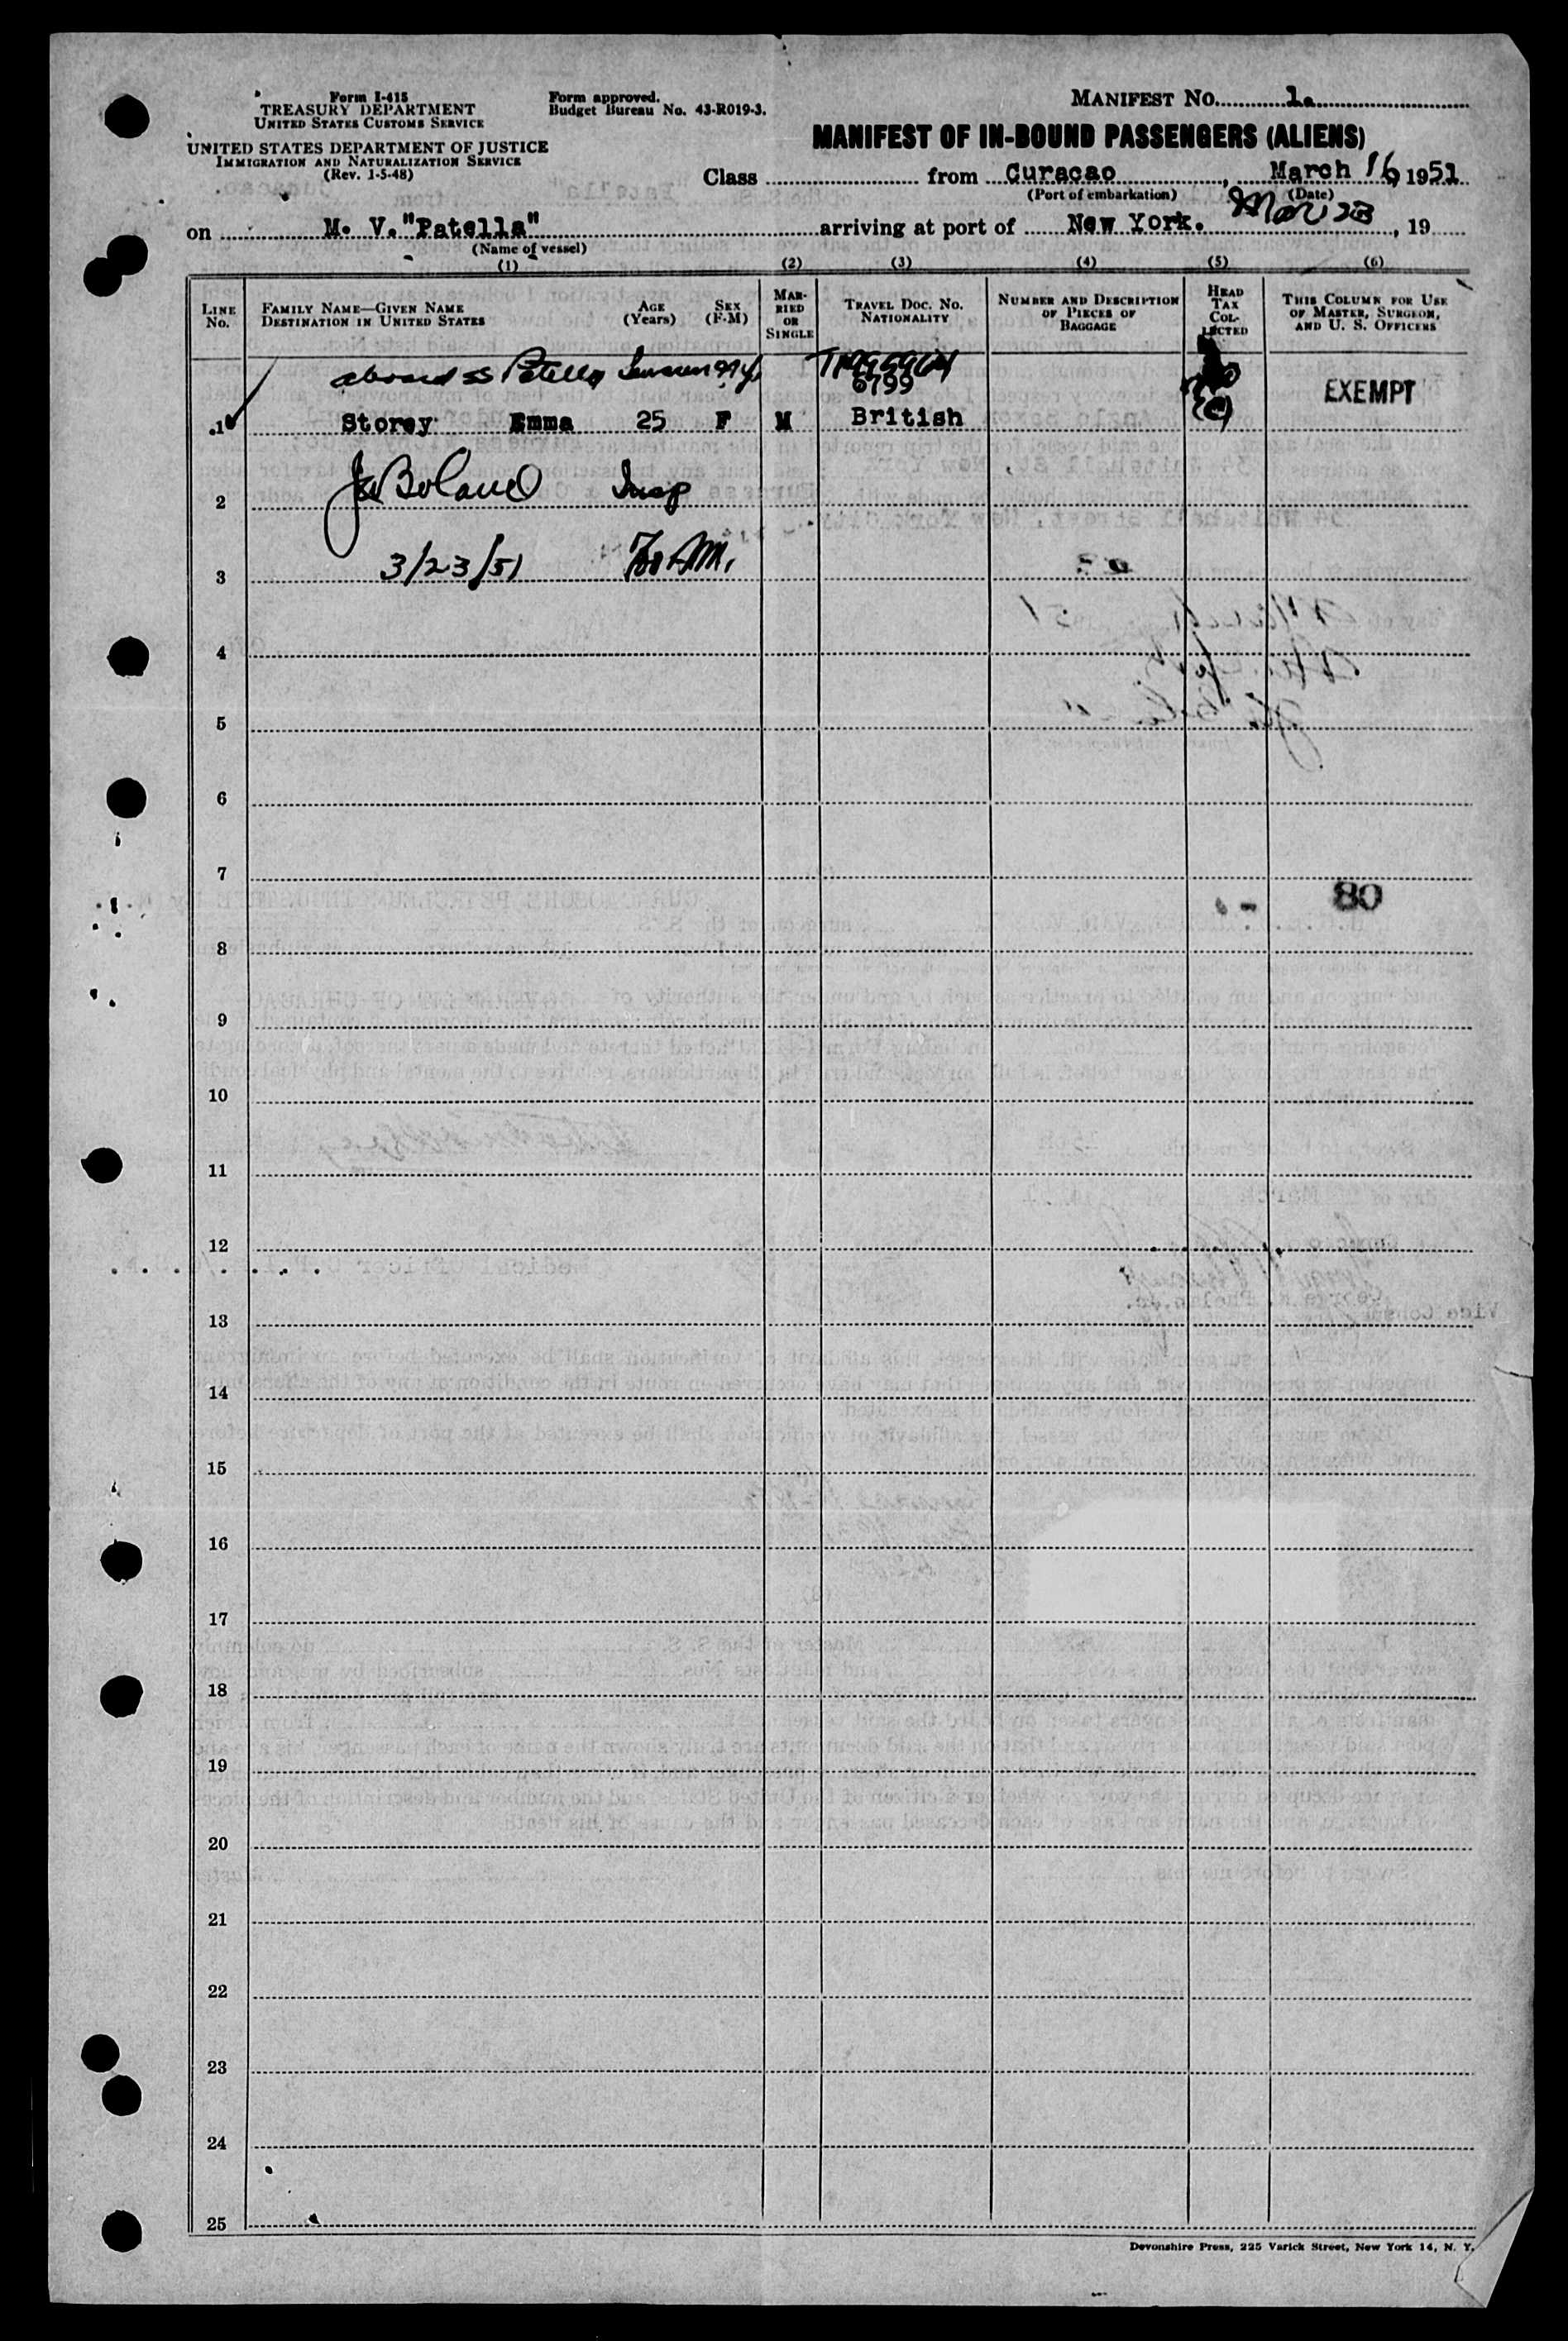 Form I-415
TREASURY DEPARTMENT
UNITED STATES CUSTOMS SERVICE
UNITED STATES DEPARTMENT OF JUSTICE
IMMIGRATION AND NATURALIZATION SERVICE
(Rev. 1-5-48)
Form approved.
Budget Bureau No. 43-R019-3.
MANIFEST NO. 1.
MANIFEST OF IN-BOUND PASSENGERS (ALIENS)
Class from Curacao, March 16, 1951
(Port of embarkation) (Date)
on M. V. "Patella" arriving at port of New York. Mar 23, 19
(Name of vessel)
(1) (2) (3) (4) (5) (6)
LINE No.
FAMILY NAME—GIVEN NAME
DESTINATION IN UNITED STATES
AGE (Years)
SEX (F-M)
MARRIED OR SINGLE
TRAVEL DOC. NO.
NATIONALITY
NUMBER AND DESCRIPTION OF PIECES OF BAGGAGE
HEAD TAX COLLECTED
THIS COLUMN FOR USE OF MASTER, SURGEON, AND U. S. OFFICERS
aboard SS Patella
6799
EXEMPT
1 Storey Emma 25 F M British
2 Boland Insp
3 3/23/51
4
5
6
7
80
8
9
10
11
12
13
14
15
16
17
18
19
20
21
22
23
24
25
Devonshire Press, 225 Varick Street, New York 14, N. Y.